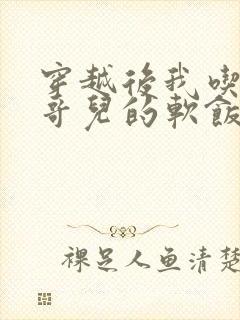 穿越後我喫
哥兒的軟飯
裸足人鱼清楚